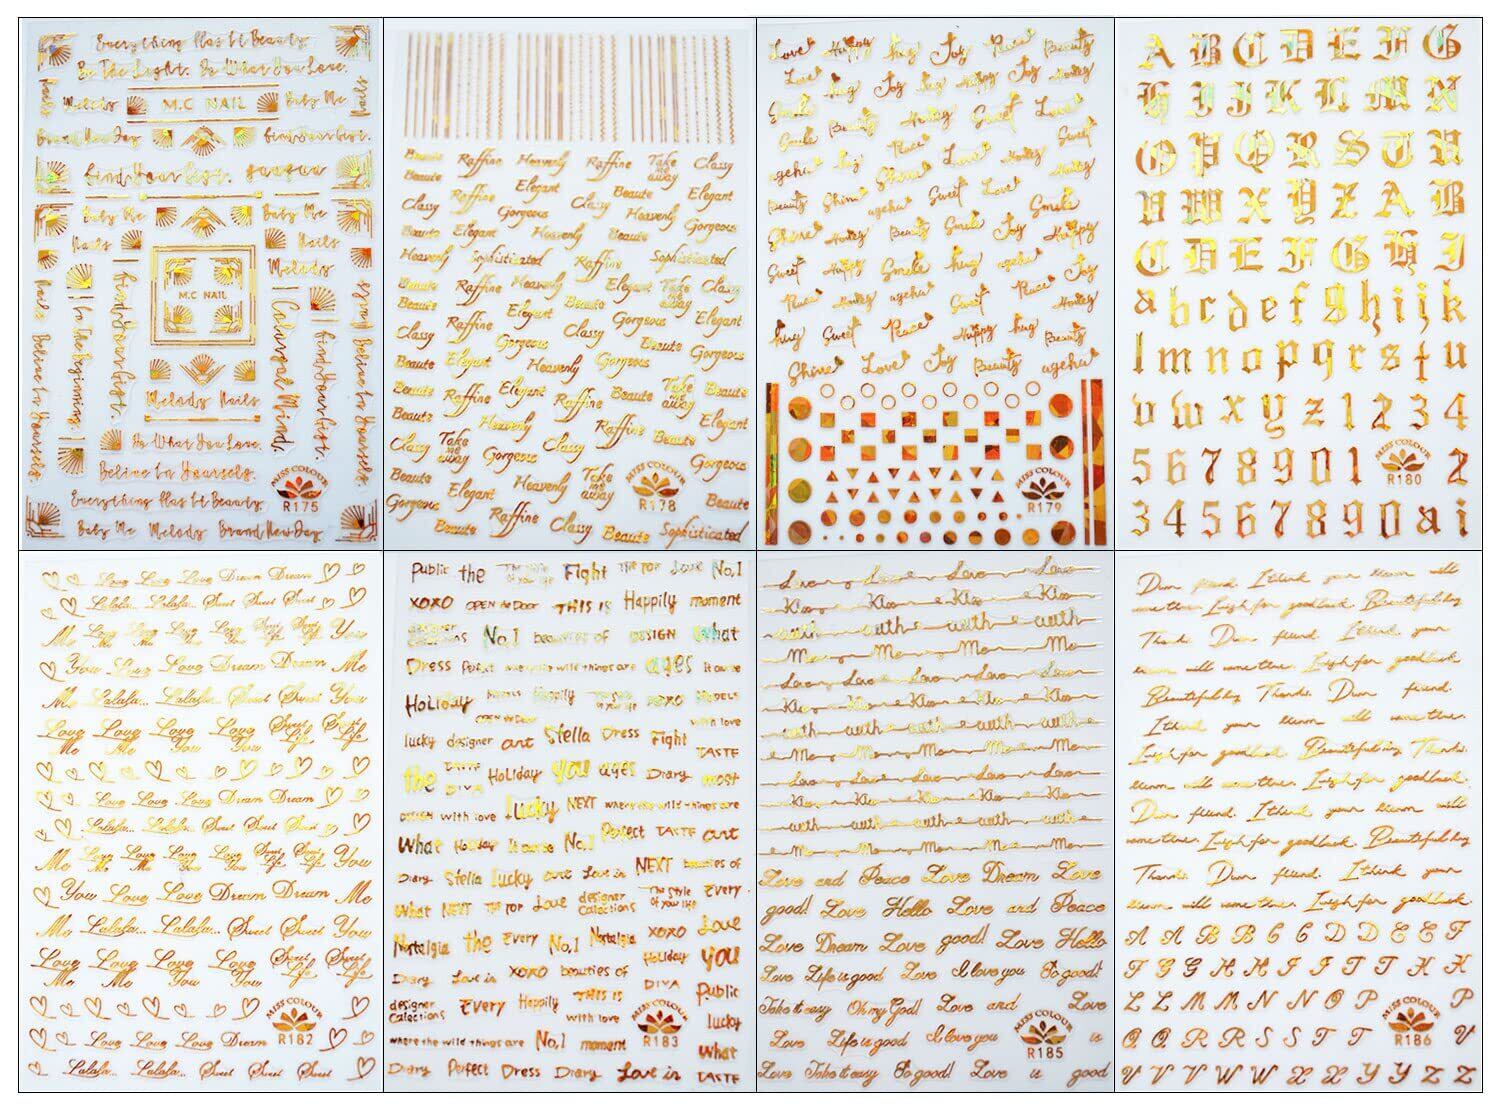 Everything Has It Beauty.
Be The Light. Be What You Love.
Nails Melody M.C NAIL Baby Me Nails
Brand New Day Find Your Gist.
Find Your Gist.
Baby Me Baby Me
Nails Nails
Melody
M.C NAIL
Nails
Believe In Yourself.
In The Beginning.
Find Your Gist.
Colorful Mind.
Find Your Gist.
Believe In Yourself.
Melody Nails
Be What You Love.
Believe In Yourself.
MISS COLOUR
R175
Everything Has It Beauty.
Baby Me Melody Brand New Day
Beaute Raffine Heavenly Raffine Take me away Classy
Beaute Elegant Beaute Elegant
Classy Gorgeous Heavenly Gorgeous
Beaute Elegant Heavenly Beaute
Heavenly Sophisticated Raffine Sophisticated
Beaute Raffine Heavenly Elegant Take me away Classy
Beaute Elegant Beaute
Raffine Classy Gorgeous Elegant
Classy Gorgeous Gorgeous
Beaute Elegant Heavenly Gorgeous
Beaute Raffine Elegant Raffine Take me away Beaute
Beaute Heavenly Raffine Elegant
Classy Take me away Gorgeous Classy Beaute
Gorgeous
Beaute Elegant Heavenly Take me away
MISS COLOUR
R178
Gorgeous Beaute Raffine Classy Beaute
Sophisticated
Love Happy hug Joy Peace Beauty
Love hug Joy Happy Joy Honey
Smile Beauty Honey Sweet Love
Smile Peace Sweet
ageha hug Shine Love Honey Honey
Beauty Shine ageha Sweet Love Smile
Shine Honey Beauty Smile Joy Happy
Sweet Happy Smile hug ageha Joy
Peace Honey ageha Sweet Peace Honey
hug Sweet Peace Happy hug Beauty
Shine Love Joy Beauty ageha
MISS COLOUR
R179
A B C D E F G
H I J K L M N
O P Q R S T U
V W X Y Z A B
C D E F G H I
a b c d e f g h i j k
l m n o p q r s t u
v w x y z 1 2 3 4
5 6 7 8 9 0 1 MISS COLOUR R180 2
3 4 5 6 7 8 9 0 a i
Love Love Love Dream Dream
Lalala... Lalala... Sweet Sweet Sweet
Me Love Me Love Me Love You Love You Sweet Life Sweet Life You
You Love Love Dream Dream Me
Me Lalala... Lalala... Sweet Sweet You
Love Me Love Me Love You Love You Sweet Life Sweet Life
Love Love Love Dream Dream
Lalala... Lalala... Sweet Sweet Sweet
Me Love Me Love Me Love You Love You Sweet Life Sweet Life You
You Love Love Dream Dream Me
Me Lalala... Lalala... Sweet Sweet You
Love Me Love Me Love You Love You Sweet Life Sweet Life
MISS COLOUR
R182
Love Love Love Dream
Lalala... Lalala... Sweet Sweet Sweet
Public the The Style of your life Fight THE TOP Love No,1
XOXO OPEN the DOOR THIS IS Happily moment
designer Calections No,1 beauties of DESIGN What
Dress Perfect where the wild things are ages
Holiday Happily The Style of your life XOXO MODELS
OPEN the DOOR with love
lucky designer art Stella Dress Fight TASTE
the TASTE DIVA Holiday you ages Diary most
DESIGN with love lucky NEXT where the wild things are
What Holiday No,1 Perfect TASTE art
Diary Stella lucky art Love in NEXT beauties of
What NEXT THE TOP Love designer Calections The Style of your life Every
Nostalgia the Every No,1 Nostalgia XOXO Love
Holiday you
Diary Love in XOXO beauties of DIVA
designer Calections Every Happily THIS IS Public
with love MISS COLOUR lucky
where the wild things are No,1 moment R183 What
Diary Perfect Dress Diary Love in TASTE
Love Love Love Love
Kiss Kiss Kiss Kiss
with with with with
Me Me Me Me
Love Love Love Love
Kiss Kiss Kiss Kiss
with with with with
Me Me Me Me
Love Love Love Love
Kiss Kiss Kiss Kiss
with with with with
Me Me Me Me
Love and Peace Love Dream Love
good! Love Hello Love and Peace
Love Dream Love good! Love Hello
Love Life is good Love I love you So good!
Take it easy Oh my God! Love and Love
Love Life is good I love you MISS COLOUR R185 is
Love Take it easy So good! Love is good
Thanks. Dum friend. I think your
Beautiful boy Thanks. Dum friend.
A A B B C C D D E E F
F G G H H I I T T K K
L L M M N N O P MISS COLOUR P
Q Q R R S S T T R186 V
V V V W W X X Y Y Z Z